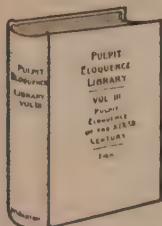 PULPIT
ELOQUENCE
LIBRARY
VOL III
PULPIT
ELOQUENCE
LIBRARY
VOL III
PULPIT
ELOQUENCE
OF THE
CENTURY